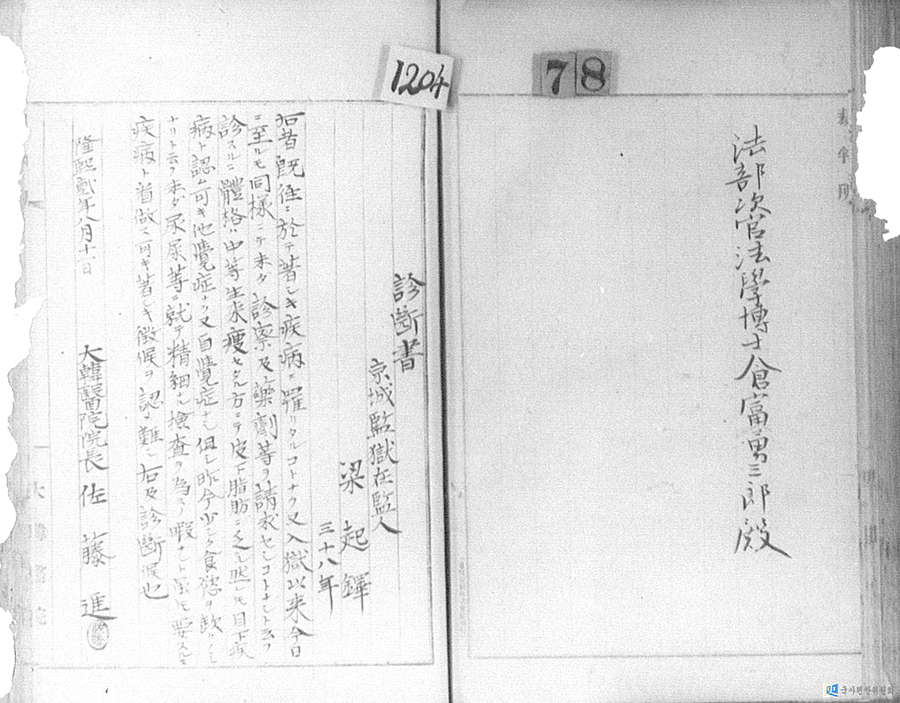 1204
78
法部次官法學博士倉富勇三郎殿
診断書
京城監獄在監人
梁起鐸
三十八年
右者既往ニ於テ著シキ疾病ニ罹リタルコトナク又入獄以来今日
ニ至ルモ同様ニテ未ダ診察及藥劑等ヲ請求セシコトナシト云フ
診スルニ體格ハ中等生来瘦セタル方ニテ皮下脂肪ニ乏シ然レモ目下疾
病ト認ム可キ他覺症ナク又自覺症ナシ但シ昨今少シク食慾ヲ
ナリト云フ未ダ尿等ニ就テ精細ナル検査ヲ為スノ暇ナシト雖モ要スルニ
疾病ト看做ス可キ著シキ徴候ヲ認メ難シ右及診断候也
隆熙貳年八月十一日
大韓醫院院長 佐藤進
국사편찬위원회